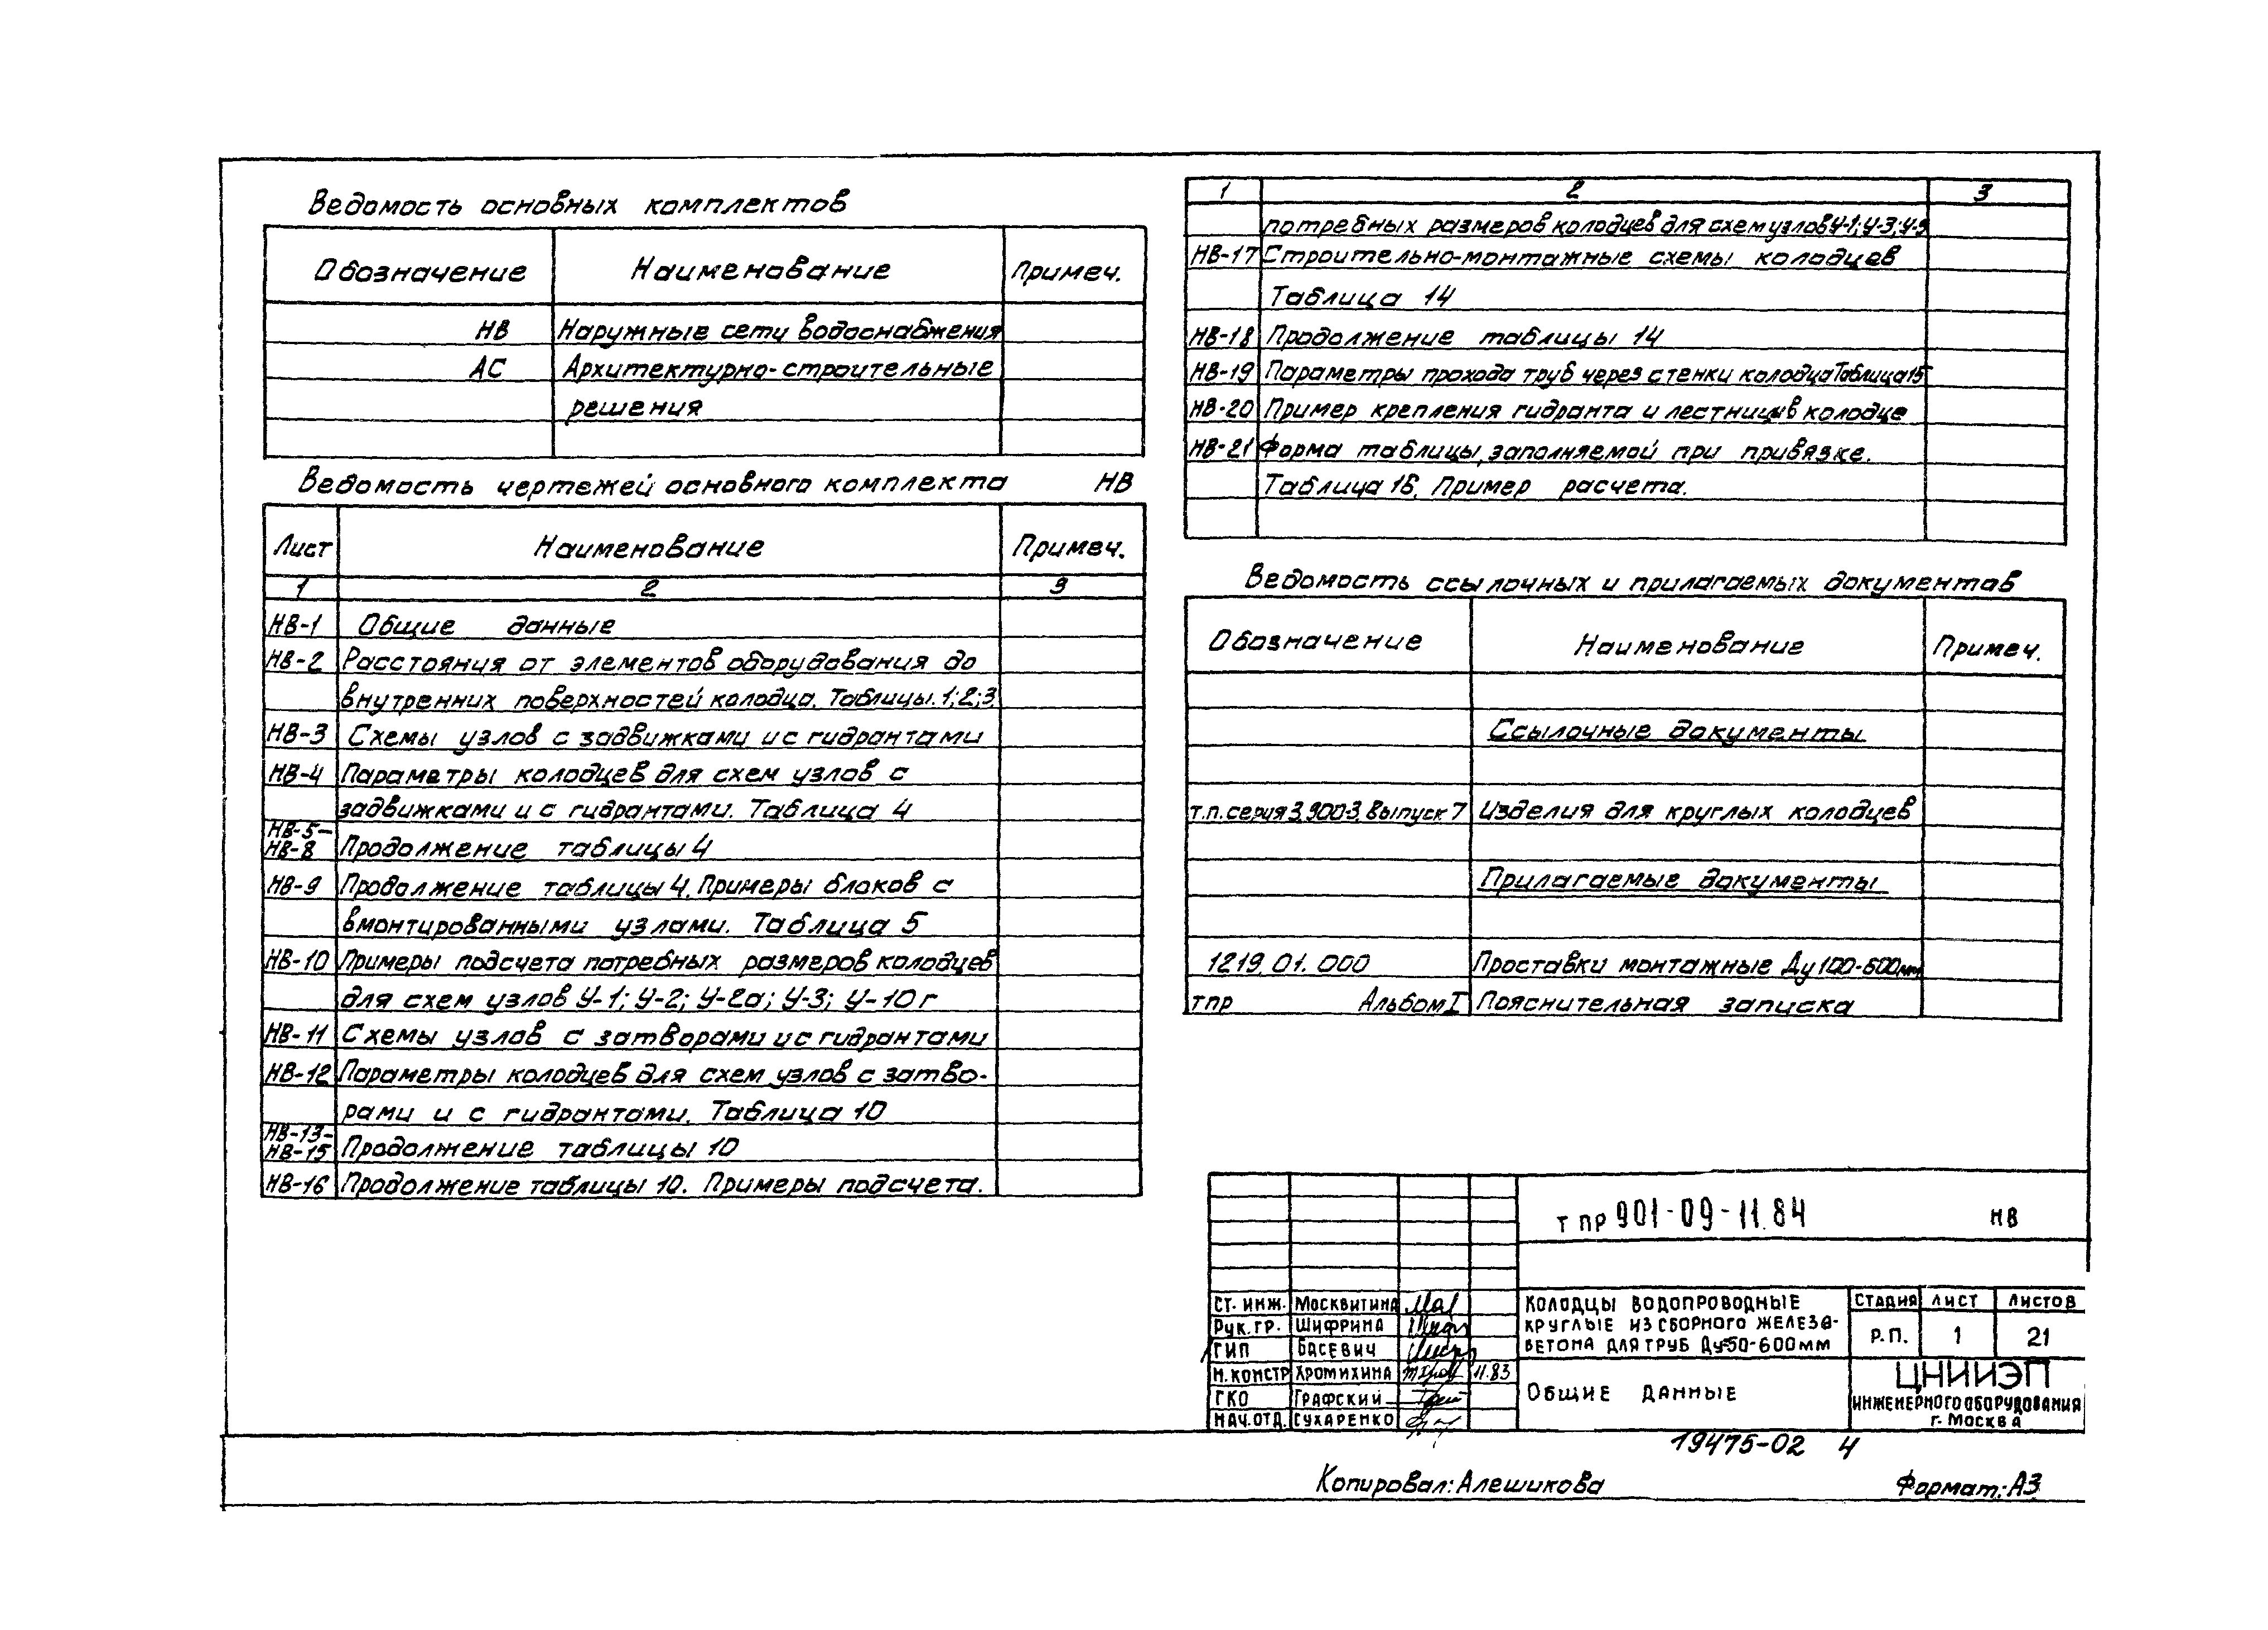 Ведомость основных комплектов
Обозначение Наименование Примеч.
НВ Наружные сети водоснабжения
АС Архитектурно-строительные
решения
Ведомость чертежей основного комплекта НВ
Лист Наименование Примеч.
1 2 3
НВ-1 Общие данные
НВ-2 Расстояния от элементов оборудования до
внутренних поверхностей колодца. Таблицы.1;2;3.
НВ-3 Схемы узлов с задвижками и с гидрантами
НВ-4 Параметры колодцев для схем узлов с
задвижками и с гидрантами. Таблица 4
НВ-5-
НВ-8 Продолжение таблицы 4
НВ-9 Продолжение таблицы 4. Примеры блоков с
вмонтированными узлами. Таблица 5
НВ-10 Примеры подсчета потребных размеров колодцев
для схем узлов У-1; У-2; У-2а; У-3; У-10г
НВ-11 Схемы узлов с затворами и с гидрантами
НВ-12 Параметры колодцев для схем узлов с затво-
рами и с гидрантами. Таблица 10
НВ-13-
НВ-15 Продолжение таблицы 10
НВ-16 Продолжение таблицы 10. Примеры подсчета.
1 2 3
потребных размеров колодцев для схем узлов У-1; У-3; У-9
НВ-17 Строительно-монтажные схемы колодцев
Таблица 14
НВ-18 Продолжение таблицы 14
НВ-19 Параметры прохода труб через стенки колодца Таблица 15
НВ-20 Пример крепления гидранта и лестницы в колодце
НВ-21 Форма таблицы, заполняемой при привязке.
Таблица 16. Пример расчета.
Ведомость ссылочных и прилагаемых документов
Обозначение Наименование Примеч.
Ссылочные документы
т.п. серия 3.900-3, Выпуск 7 Изделия для круглых колодцев
Прилагаемые документы
1219.01.000 Проставки монтажные Ду 100-600мм
тпр Альбом I Пояснительная записка
т пр 901-09-11.84 НВ
Ст. инж. Москвитина
Рук. гр. Шифрина
ГИП Басевич
Н.констр Хромихина 11.83
ГКО Графский
Нач.отд. Сухаренко
Колодцы водопроводные
круглые из сборного железо-
бетона для труб Ду50-600мм
Стадия Лист Листов
Р.П. 1 21
Общие данные
ЦНИИЭП
инженерного оборудования
г. Москва
19475-02 4
Копировал: Алешикова
Формат: А3